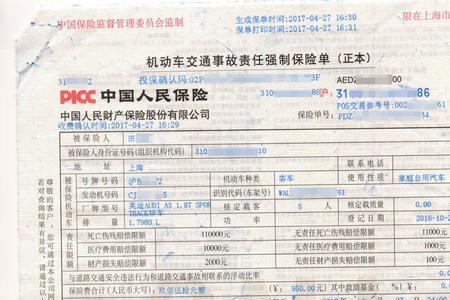 中国保险监督管理委员会监制
生成保单时间:2017-04-27 16:30
保单打印时间:2017-04-27 16:31
限在上海市
机动车交通事故责任强制保险单(正本)
投保确认码:02P 3F
AEDZ 00
PICC 中国人民保险
沪: 31 86
中国人民财产保险股份有限公司
POS交易参考号:002 61
收费确认时间:2017-04-27 16:29
保险单号: PDZ 34
被保险人 田
被保险人身份证号码(组织机构代码) 310 10
地址 上海 联系电话
被保险机动车
号牌号码 沪B 2 机动车种类 客车 使用性质 家庭自用汽车
发动机号码 CJ 5 识别代码(车架号) WAL 61
厂牌型号 奥迪AUDI A3 1.8T SPOR
TBACK轿车
核定载客 5 人 核定载质量 0.00
排量 1.7980 L 功率 登记日期 2016-10-2
责任限额
死亡伤残赔偿限额 110000元 无责任死亡伤残赔偿限额 11000
医疗费用赔偿限额 10000元 无责任医疗费用赔偿限额 1000
财产损失赔偿限额 2000元 无责任财产损失赔偿限额 100
与道路交通安全违法行为和道路交通事故相联系的浮动比率
保险费合计(人民币大写): 玖佰伍拾元整 (¥: 950.00 元) 其中救助基金(
尊敬的客户：您可通过本公司网
若对查询结果有异议，请通过以